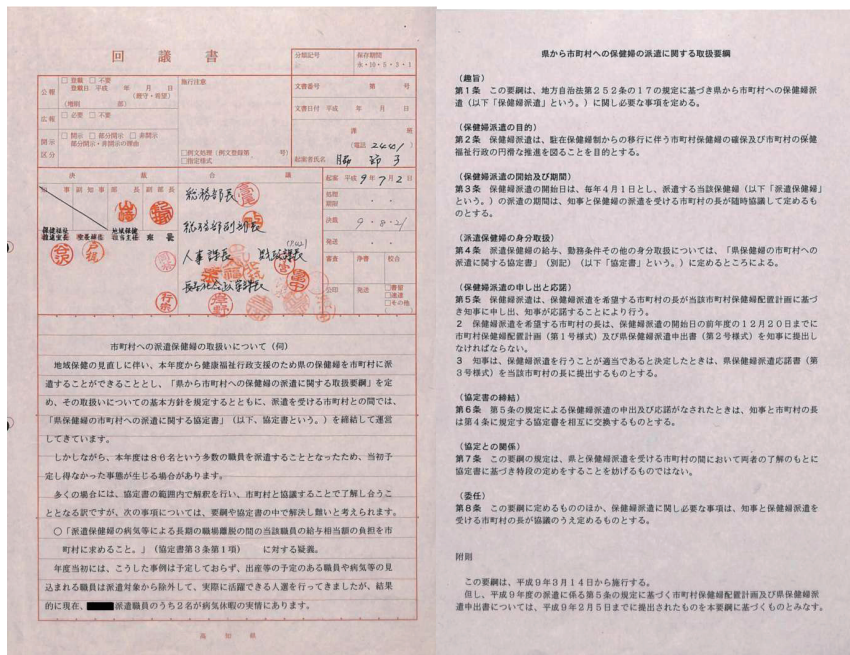 回議書
分類記号
保存期間
永・10・5・3・1
公報
□ 登載 □ 不要
登載日 平成 年 月 日
(厳守・希望)
(増刷 部)
広報
□ 必要 □ 不要
開示区分
□ 開示 □ 部分開示 □ 非開示
部分開示・非開示の理由
施行注意
□例文処理(例文登録第 号)
□指定様式
文書番号 第 号
文書日付 平成 年 月 日
課 班
(電話 2441)
起案者氏名
決裁
合議
知事 副知事 部長 副部長
起案 平成9年7月2日
処理期限 ・ ・
決裁 9・8・21
発送 ・ ・
審査 浄書 校合
公印 発送 □書留
□速達
□その他
総務部長
総務部副部長
人事課長 財政課長
市町村への派遣保健婦の取扱いについて(伺)
地域保健の見直しに伴い、本年度から健康福祉行政支援のため県の保健婦を市町村に派
遣することができることとし、「県から市町村への保健婦の派遣に関する取扱要綱」を定
め、その取扱いについての基本方針を規定するとともに、派遣を受ける市町村との間では、
「県保健婦の市町村への派遣に関する協定書」(以下、協定書という。)を締結して運営
してきています。
しかしながら、本年度は86名という多数の職員を派遣することとなったため、当初予
定し得なかった事態が生じる場合があります。
多くの場合には、協定書の範囲内で解釈を行い、市町村と協議することで了解し合うこ
ととなる訳ですが、次の事項については、要綱や協定書の中で解決し難いと考えられます。
○「派遣保健婦の病気等による長期の職場離脱の間の当該職員の給与相当額の負担を市
町村に求めること。」(協定書第3条第1項) に対する疑義。
年度当初には、こうした事例は予定しておらず、出産等の予定のある職員や病気等の見
込まれる職員は派遣対象から除外して、実際に活躍できる人選を行ってきましたが、結果
的に現在、派遣職員のうち2名が病気休暇の実情にあります。
高知県
県から市町村への保健婦の派遣に関する取扱要綱
(趣旨)
第1条 この要綱は、地方自治法第252条の17の規定に基づき県から市町村への保健婦派
遣(以下「保健婦派遣」という。)に関し必要な事項を定める。
(保健婦派遣の目的)
第2条 保健婦派遣は、駐在保健婦制からの移行に伴う市町村保健婦の確保及び市町村の保健
福祉行政の円滑な推進を図ることを目的とする。
(保健婦派遣の開始及び期間)
第3条 保健婦派遣の開始日は、毎年4月1日とし、派遣する当該保健婦(以下「派遣保健婦」
という。)の派遣の期間は、知事と保健婦の派遣を受ける市町村の長が随時協議して定めるも
のとする。
(派遣保健婦の身分取扱)
第4条 派遣保健婦の給与、勤務条件その他の身分取扱については、「県保健婦の市町村への
派遣に関する協定書」(別記)(以下「協定書」という。)に定めるところによる。
(保健婦派遣の申し出と応諾)
第5条 保健婦派遣は、保健婦派遣を希望する市町村の長が当該市町村保健婦配置計画に基づ
き知事に申し出、知事が応諾することにより行う。
2 保健婦派遣を希望する市町村の長は、保健婦派遣の開始日の前年度の12月20日までに
市町村保健婦配置計画(第1号様式)及び県保健婦派遣申出書(第2号様式)を知事に提出し
なければならない。
3 知事は、保健婦派遣を行うことが適当であると決定したときは、県保健婦派遣応諾書(第
3号様式)を当該市町村の長に提出するものとする。
(協定書の締結)
第6条 第5条の規定による保健婦派遣の申出及び応諾がなされたときは、知事と市町村の長
は第4条に規定する協定書を相互に交換するものとする。
(協定との関係)
第7条 この要綱の規定は、県と保健婦派遣を受ける市町村の間において両者の了解のもとに
協定書に基づき特段の定めをすることを妨げるものではない。
(委任)
第8条 この要綱に定めるもののほか、保健婦派遣に関し必要な事項は、知事と保健婦派遣を
受ける市町村の長が協議のうえ定めるものとする。
附則
この要綱は、平成9年3月14日から施行する。
但し、平成9年度の派遣に係る第5条の規定に基づく市町村保健婦配置計画及び県保健婦派
遣申出書については、平成9年2月5日までに提出されたものを本要綱に基づくものとみなす。